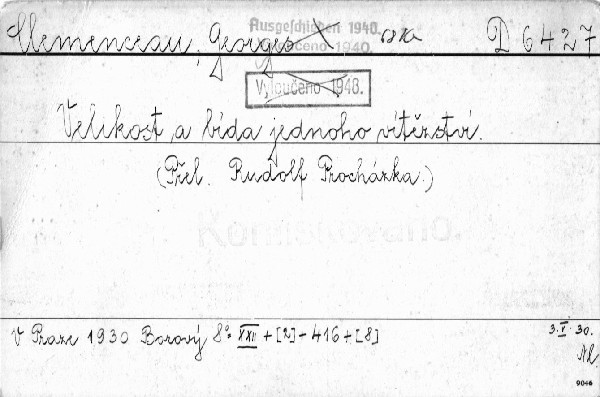 Ausgeschieden 1940.
Vyloučeno 1940.
Clemenceau, Georges D 6427
Vyloučeno 1948.
Velikost a bída jednoho vítězství.
(Přel. Rudolf Procházka.)
Konfiskováno.
V Praze 1930 Borový 8° XXII + [2] - 416 + [8] 3.I.30.
Nk.
9046